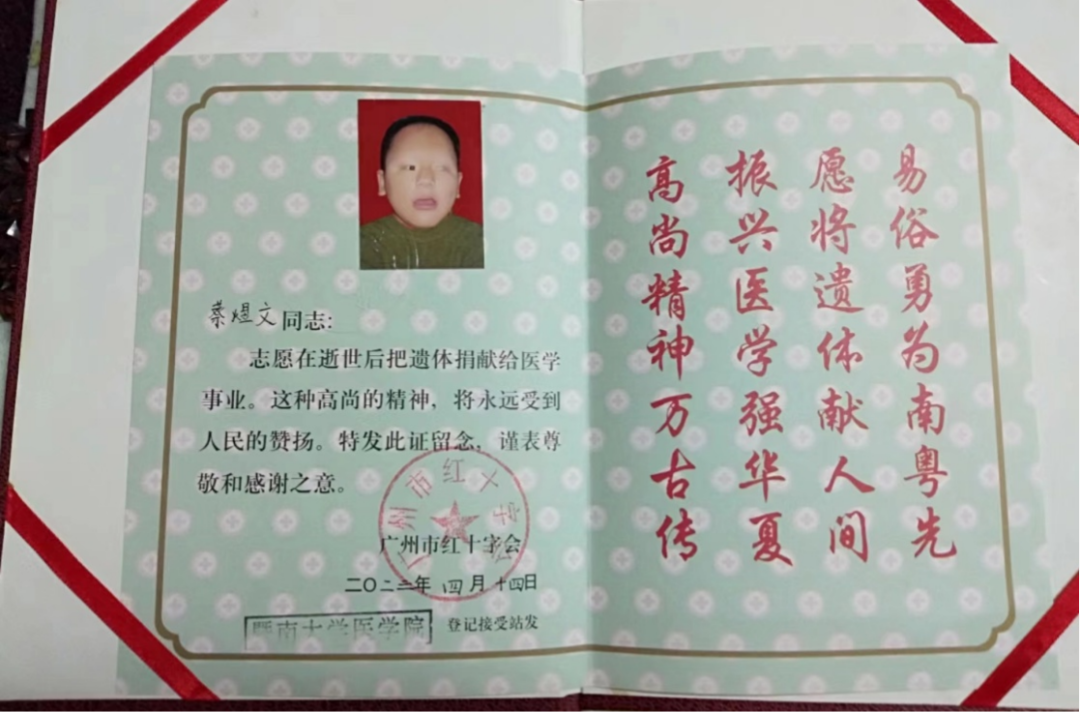 蔡煜文同志:
志愿在逝世后把遗体捐献给医学
事业。这种高尚的精神，将永远受到
人民的赞扬。特发此证留念，谨表尊
敬和感谢之意。
广州市红十字会
二〇二二年四月十四日
暨南大学医学院 登记接受站发
易俗勇为南粤先
愿将遗体献人间
振兴医学强华夏
高尚精神万古传